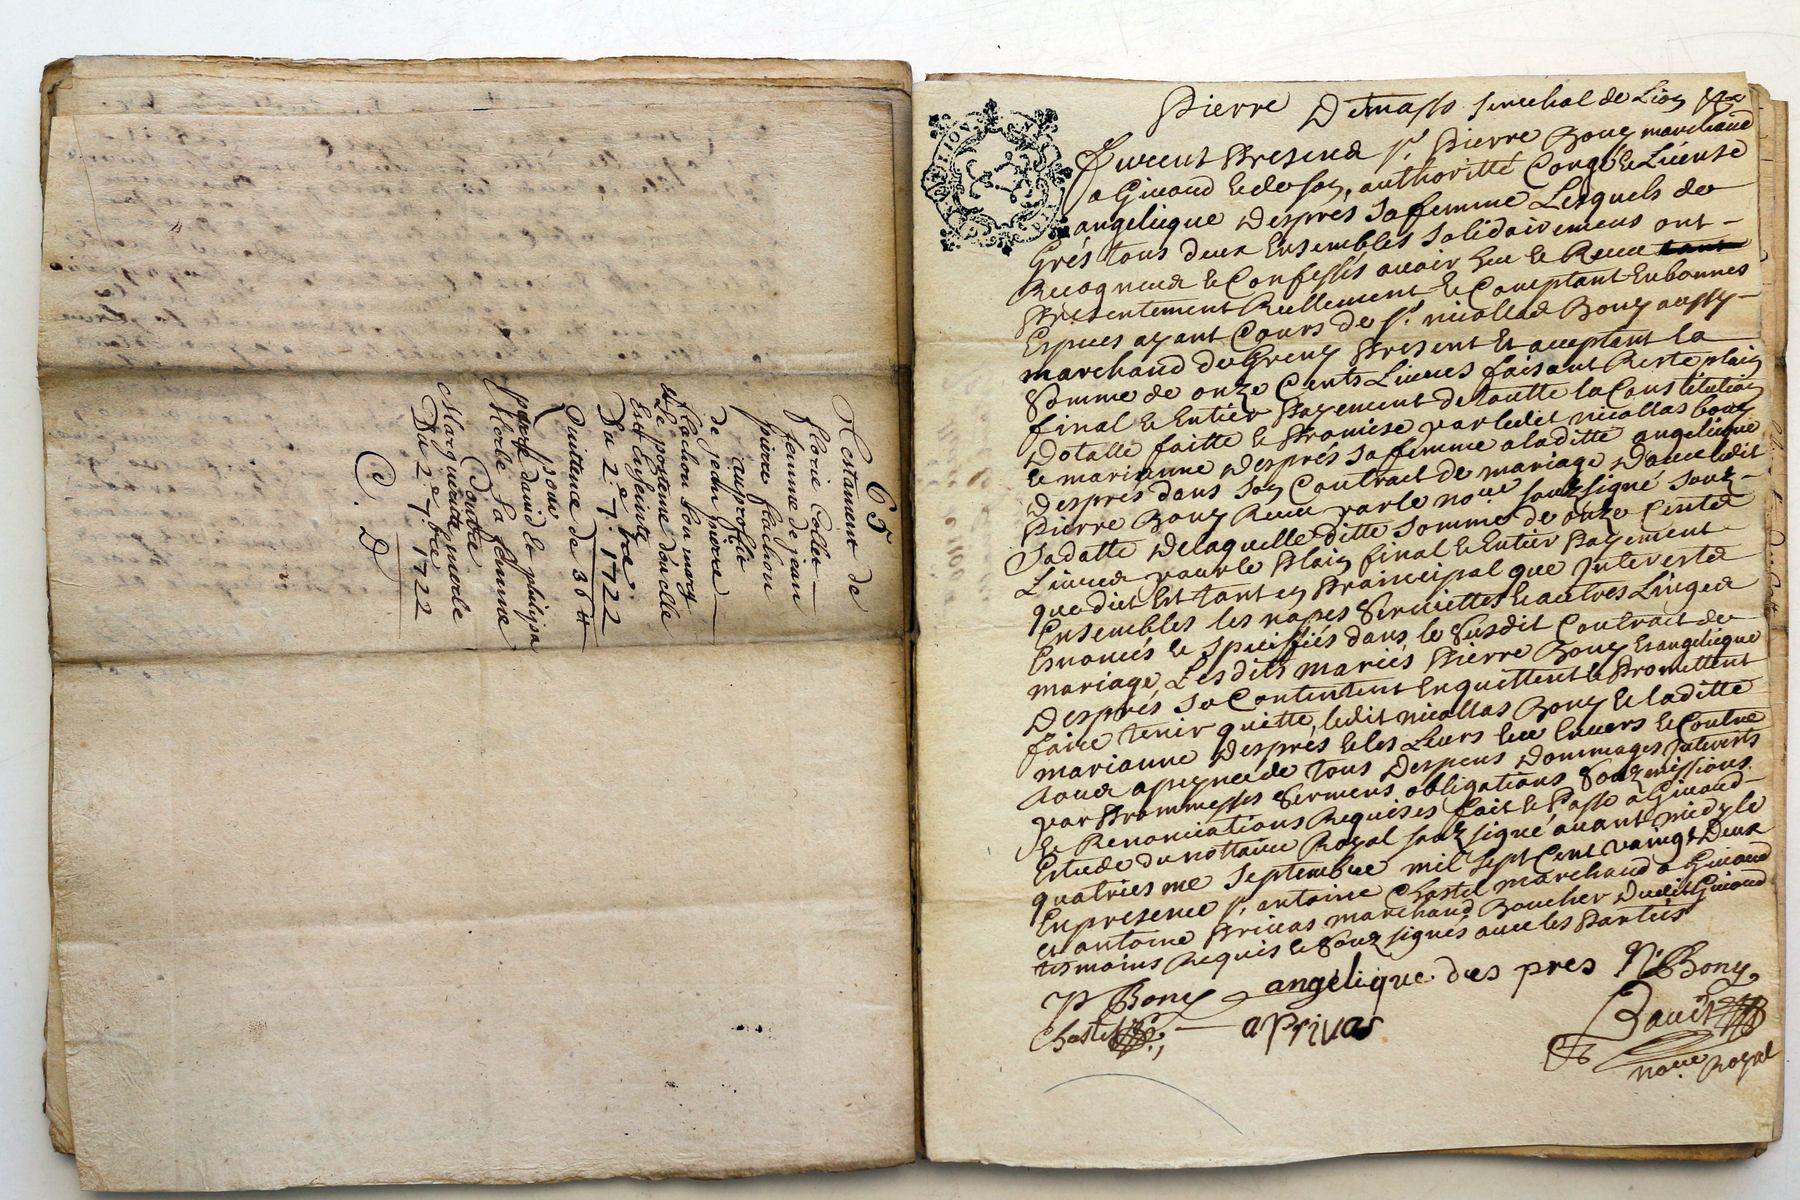 65
Testament de
florie Collet
femme de jean
pierre flachon
auproffit
de jean pierre
flachon son mary
et le postume du elle
Est Enseinte
Du 2e 7bre 1722
Quittence de 36 tt
pour
david et philipe
Merle sa femme
Contre
Marguerite merle
Du 2e 7bre 1722
C. D
Pierre Demasso senechal de Lion
furent Presend sr. Pierre Bony marchand
a Givord et de son authoritté Congé et License
angelicque Després sa femme Lesquels de
Grés tous deux Ensembles solidairemens ont
Recogneud et Confessés avoir heu et Receu
Presentement Reellement et Comptant En bonnes
Especes ayant Cours de sr. nicollas Bony aussy
marchand de Present et aceptant la
Somme de onze Cents Livres faisant Reste plain
final et Entier Payement de toutte la Constitution
Dotalle faitte et Promise par ledit nicollas bony
et marianne Després sa femme a laditte angelicque
Després dans son Contract de mariage Davec ledit
Pierre Bony Receu par le nore soubzsigné soubz
sadatte Delaquelle ditte somme de onze Cented
Livred pour le Plain final et Entier Payement
que dict Est tant en Prainsipal que Interestd
Ensembles les napes Serviettes et autres Linged
Enoncés et speciffiés dans le susdit Contract de
mariage, Lesdits mariés Pierre Bony Et angelicque
Després, se Contentent En quittent et Promettent
faire tenir quitte, ledit nicollas Bony et laditte
marianne Després et les Leurs Envers et Contre
toud a peyne de tous Despens Dommages Interests
par Prommesses Sermens obligations Soubzmissions
et Renonciations Requises fait et Passé a Givord
Estude du nottaire Royal soubzsigné, avant midy le
quatriesme Septembre mil sept Cent vaingt Deux
En presence sr. antoine Chastel marchand a Givord
et antoine Privas marchand Boucher Dudit Givord
tesmoins Requis et Soubzsignés avec les Parties
P Bony angélique dés pres N. Bony
Chastel a Privas
nore Royal